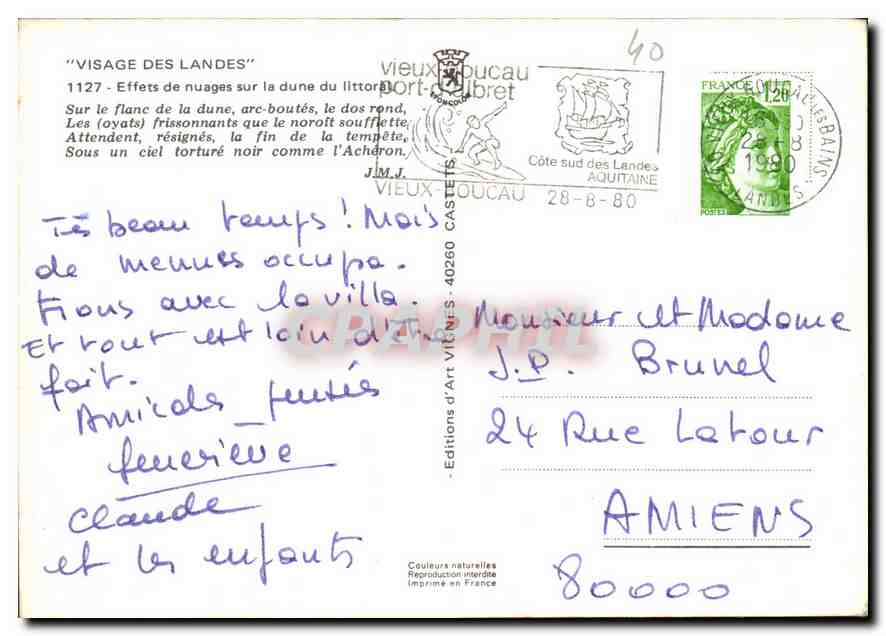 "VISAGE DES LANDES"
1127 - Effets de nuages sur la dune du littoral.
Sur le flanc de la dune, arc-boutés, le dos rond,
Les (oyats) frissonnants que le noroît soufflette,
Attendent, résignés, la fin de la tempête,
Sous un ciel torturé noir comme l'Achéron.
J.M.J.
vieux-boucau
port-d'albret
Côte sud des Landes
AQUITAINE
VIEUX-BOUCAU 28-8-80
40
FRANCE
1,20
POSTES
28-8
1980
LANDES
Très beau temps ! Mais
de menues occupa-
tions avec la villa.
Et tout est loin d'être
fait.
Amicales pensées
Geneviève
Claude
et les enfants
- Editions d'Art VIGNES - 40260 CASTETS
CPAPHIL
Monsieur et Madame
J.P. Brunel
24 Rue Latour
AMIENS
80000
Couleurs naturelles
Reproduction interdite
Imprimé en France